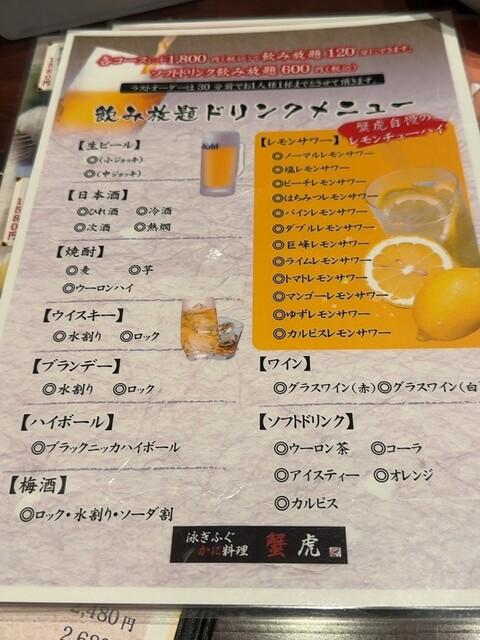 各コースに+1,800円(税込)で飲み放題120分にできます。
ソフトドリンク飲み放題600円(税込)
ラストオーダーは30分前でお1人様1杯までとさせて頂きます。
飲み放題ドリンクメニュー
蟹虎自慢の
レモンチューハイ
【生ビール】
◎(小ジョッキ)
◎(中ジョッキ)
【日本酒】
◎ひれ酒 ◎冷酒
◎次酒 ◎熱燗
【焼酎】
◎麦 ◎芋
◎ウーロンハイ
【ウイスキー】
◎水割り ◎ロック
【ブランデー】
◎水割り ◎ロック
【ハイボール】
◎ブラックニッカハイボール
【梅酒】
◎ロック・水割り・ソーダ割
【レモンサワー】
◎ノーマルレモンサワー
◎塩レモンサワー
◎ピーチレモンサワー
◎はちみつレモンサワー
◎パインレモンサワー
◎ダブルレモンサワー
◎巨峰レモンサワー
◎ライムレモンサワー
◎トマトレモンサワー
◎マンゴーレモンサワー
◎ゆずレモンサワー
◎カルピスレモンサワー
【ワイン】
◎グラスワイン(赤)◎グラスワイン(白
【ソフトドリンク】
◎ウーロン茶 ◎コーラ
◎アイスティー ◎オレンジ
◎カルピス
泳ぎふぐ
かに料理 蟹虎
1580円
1580円
2,480円